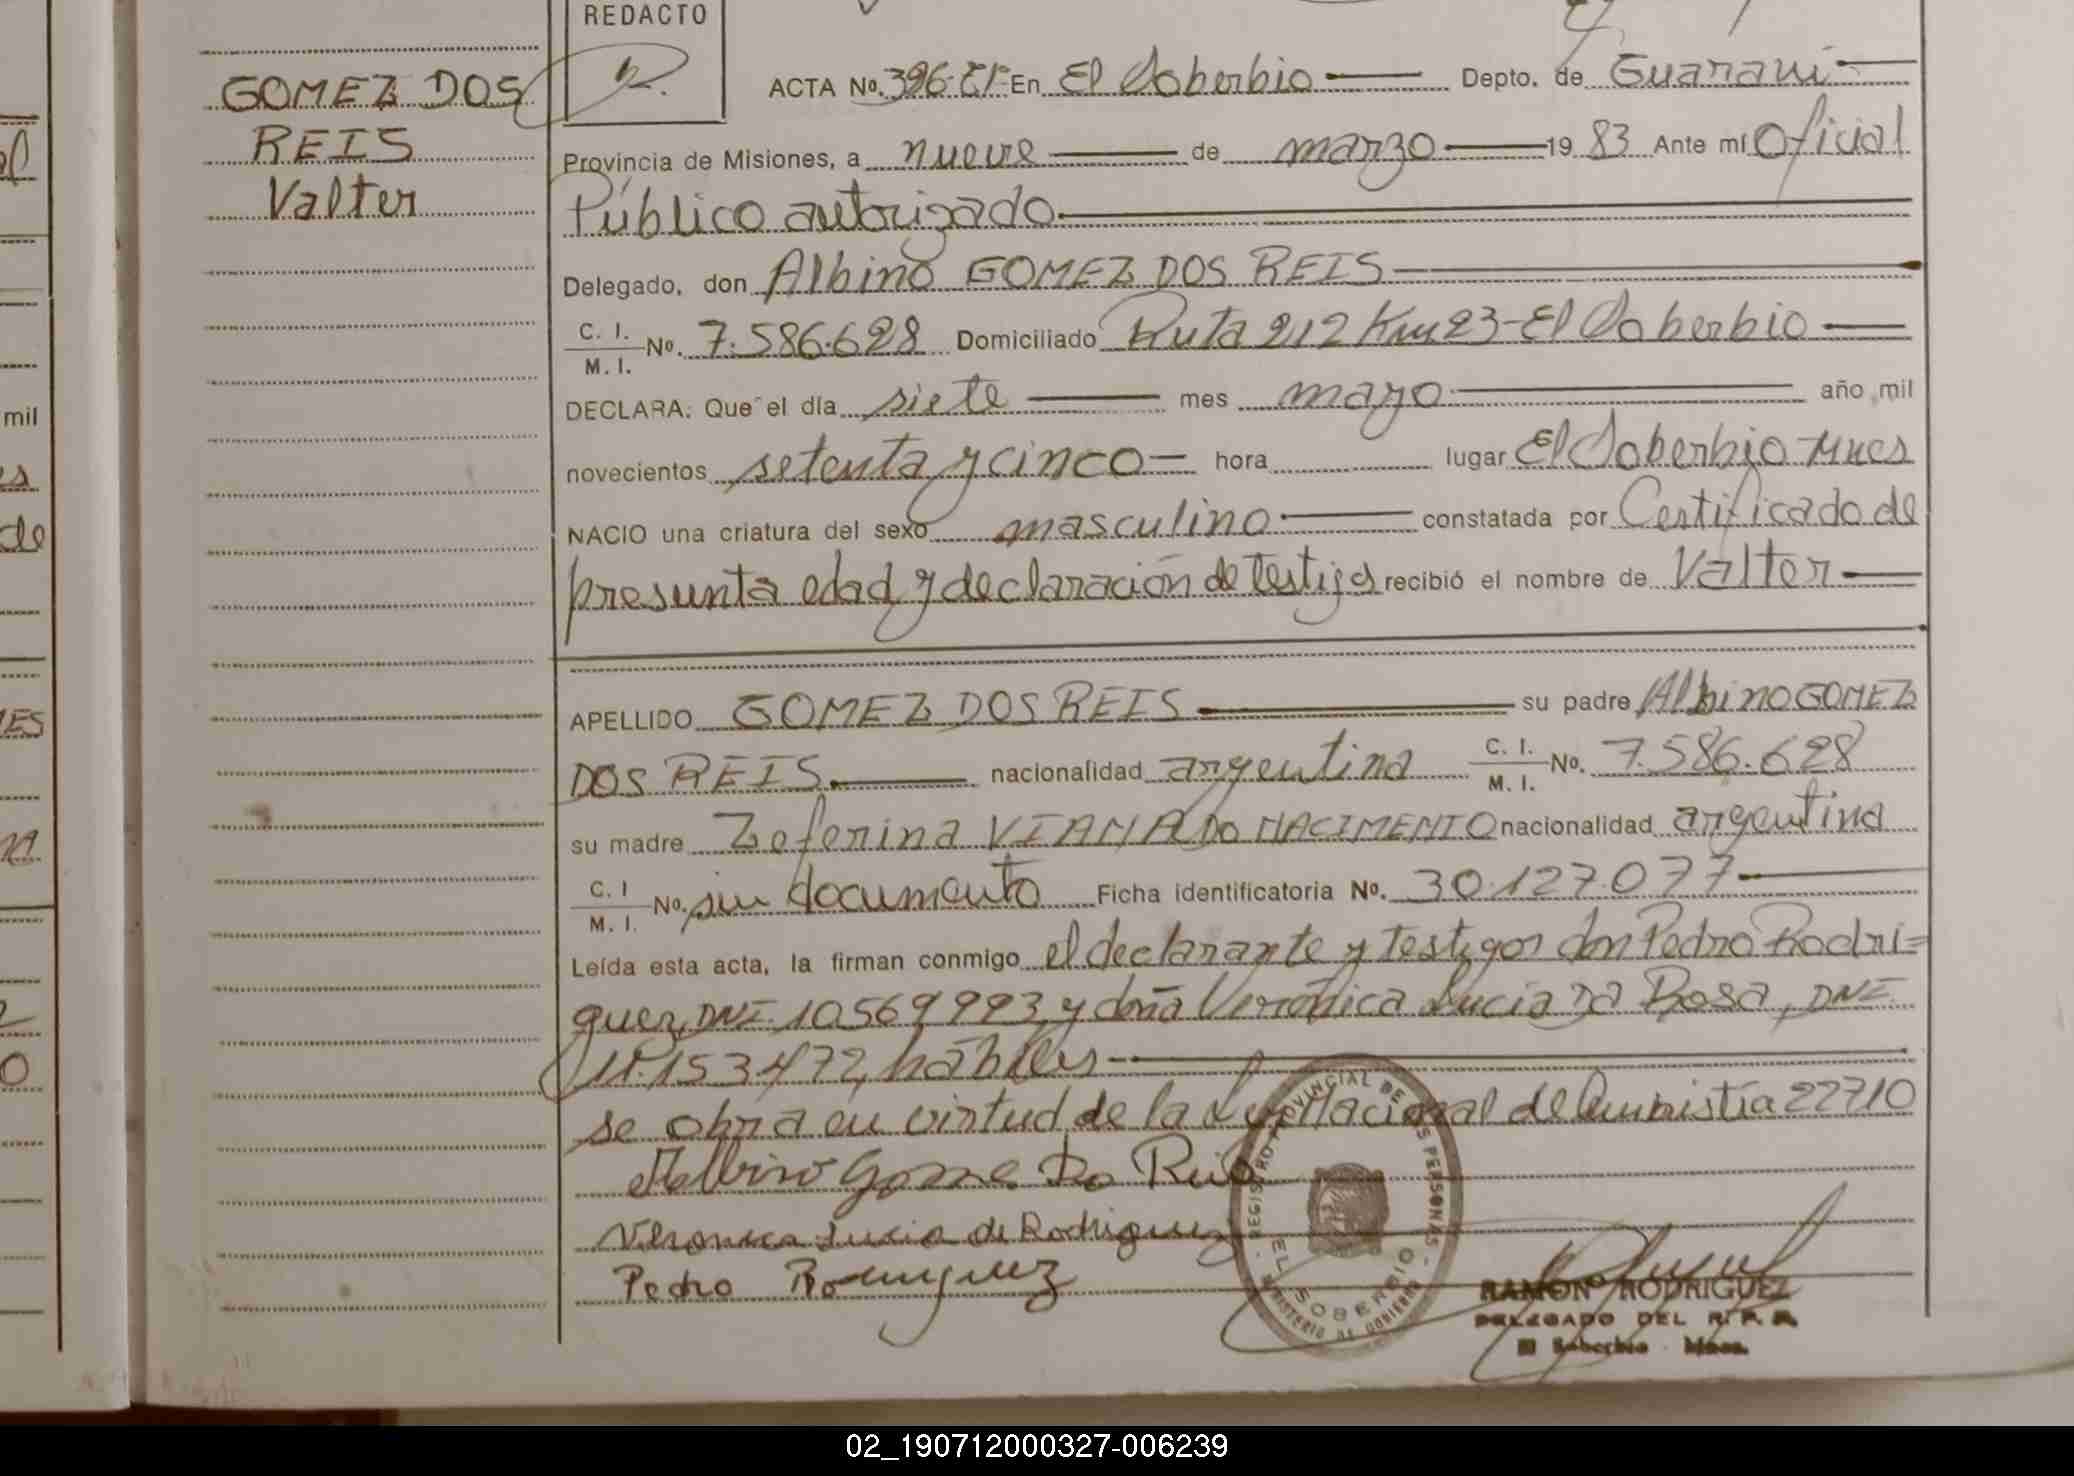 REDACTO
GOMEZ DOS
REIS
Valter
ACTA Nº. 396-Er- En El Soberbio Depto. de Guarani
Provincia de Misiones, a nueve de marzo 19 83 Ante mí Oficial
Público autorizado
Delegado, don Albino GOMEZ DOS REIS
C. I.
M. I. Nº. 7.586.628 Domiciliado Ruta 212 Km 23-El Soberbio
DECLARA: Que el día siete mes mayo año mil
novecientos setenta y cinco hora lugar El Soberbio Mnes
NACIO una criatura del sexo masculino constatada por Certificado de
presunta edad y declaración de testigos recibió el nombre de Valter
APELLIDO GOMEZ DOS REIS su padre Albino GOMEZ
DOS REIS nacionalidad argentina C. I. M. I. Nº. 7.586.628
su madre Zeferina VIANA DO NACIMENTO nacionalidad argentina
C. I M. I. Nº. sin documento Ficha identificatoria Nº. 30.127.077
Leída esta acta, la firman conmigo el declarante y testigos don Pedro Rodri=
guez, DNI. 10.569.993, y doña Verónica Lucia DA Rosa, DNI.
11.153.472, hábiles
se obra en virtud de la Ley Nacional de Amnistia 22710
Albino Gome Do Reis
Veronica Lucia de Rodriguez
Pedro Rodriguez
REGISTRO PROVINCIAL DE LAS PERSONAS
EL SOBERBIO
MINISTERIO DE GOBIERNO
RAMON RODRIGUEZ
DELEGADO DEL R. P. P.
El Soberbio - Mnes.
mil
de
02_190712000327-006239